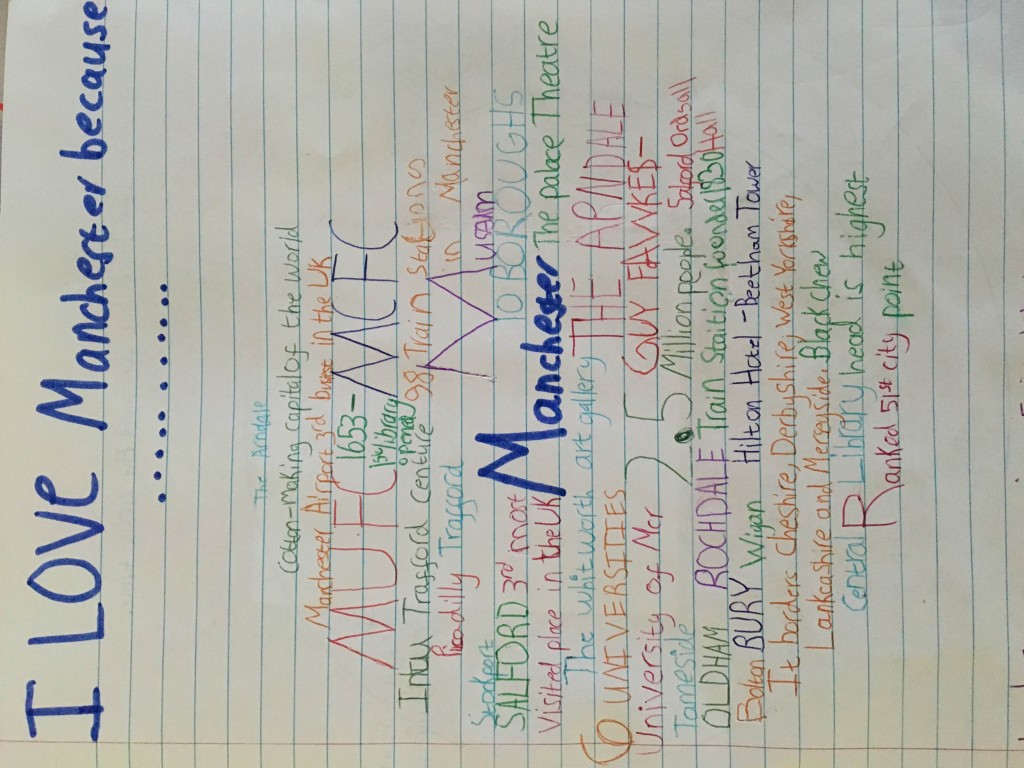 I LOVE Manchester because
..............
The Arndale
Coton-Making capital of the World
Manchester Airport 3rd busest in the UK
MUFC 1653- 1st library opened MCFC
Intu Trafford Centre 98 Train Stations in Manchester
Picadilly Trafford Museum
Stockport
SALFORD 3rd most 10 BOROUGHS
Visited place in the UK Manchester The palace Theatre
The whitworth art gallery THE ARNDALE
6 UNIVERSITIES GUY FAWKES-
University of Mcr 2.5 Million people. Salford Ordsall Hall
Tameside
OLDHAM ROCHDALE Train Staition founded 1830
Bolton BURY Wigan Hilton Hotel - Beetham Tower
It borders Cheshire, Derbyshire, West Yorkshire,
Lankcashire and Merseyside. Black chew
Central Library head is highest
Ranked 51st city point